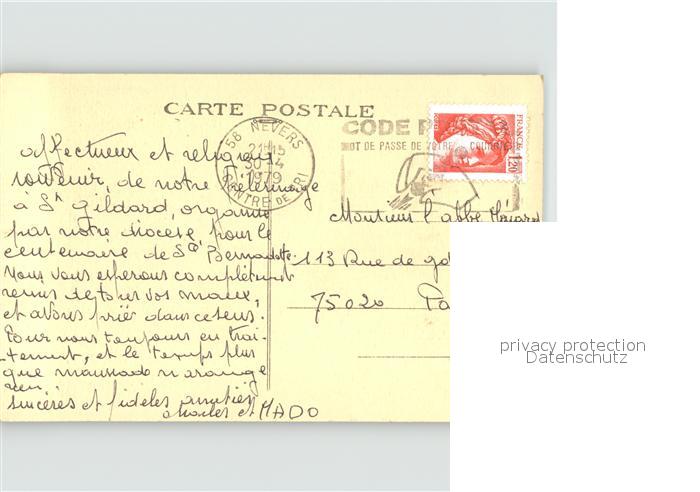 CARTE POSTALE
58 NEVERS
21H15
30-4
1979
CENTRE DE TRI
CODE P
MOT DE PASSE DE VOTRE COURRIER
FRANCE
1,20
affectueux et religieux
souvenir, de notre pèlerinage
à St Gildard, organisé
par notre diocèse, pour le
centenaire de Ste Bernadette.
Nous vous espérons complètement
remis de tous vos maux,
et avons prié dans ce sens.
Pour nous toujours en trai-
tement, et le temps plus
que maussade n'arrange
rien.
sincères et fidèles amitiés
Charles et MADO
Monsieur l'abbé
113 Rue de
75020 Pa
privacy protection
Datenschutz